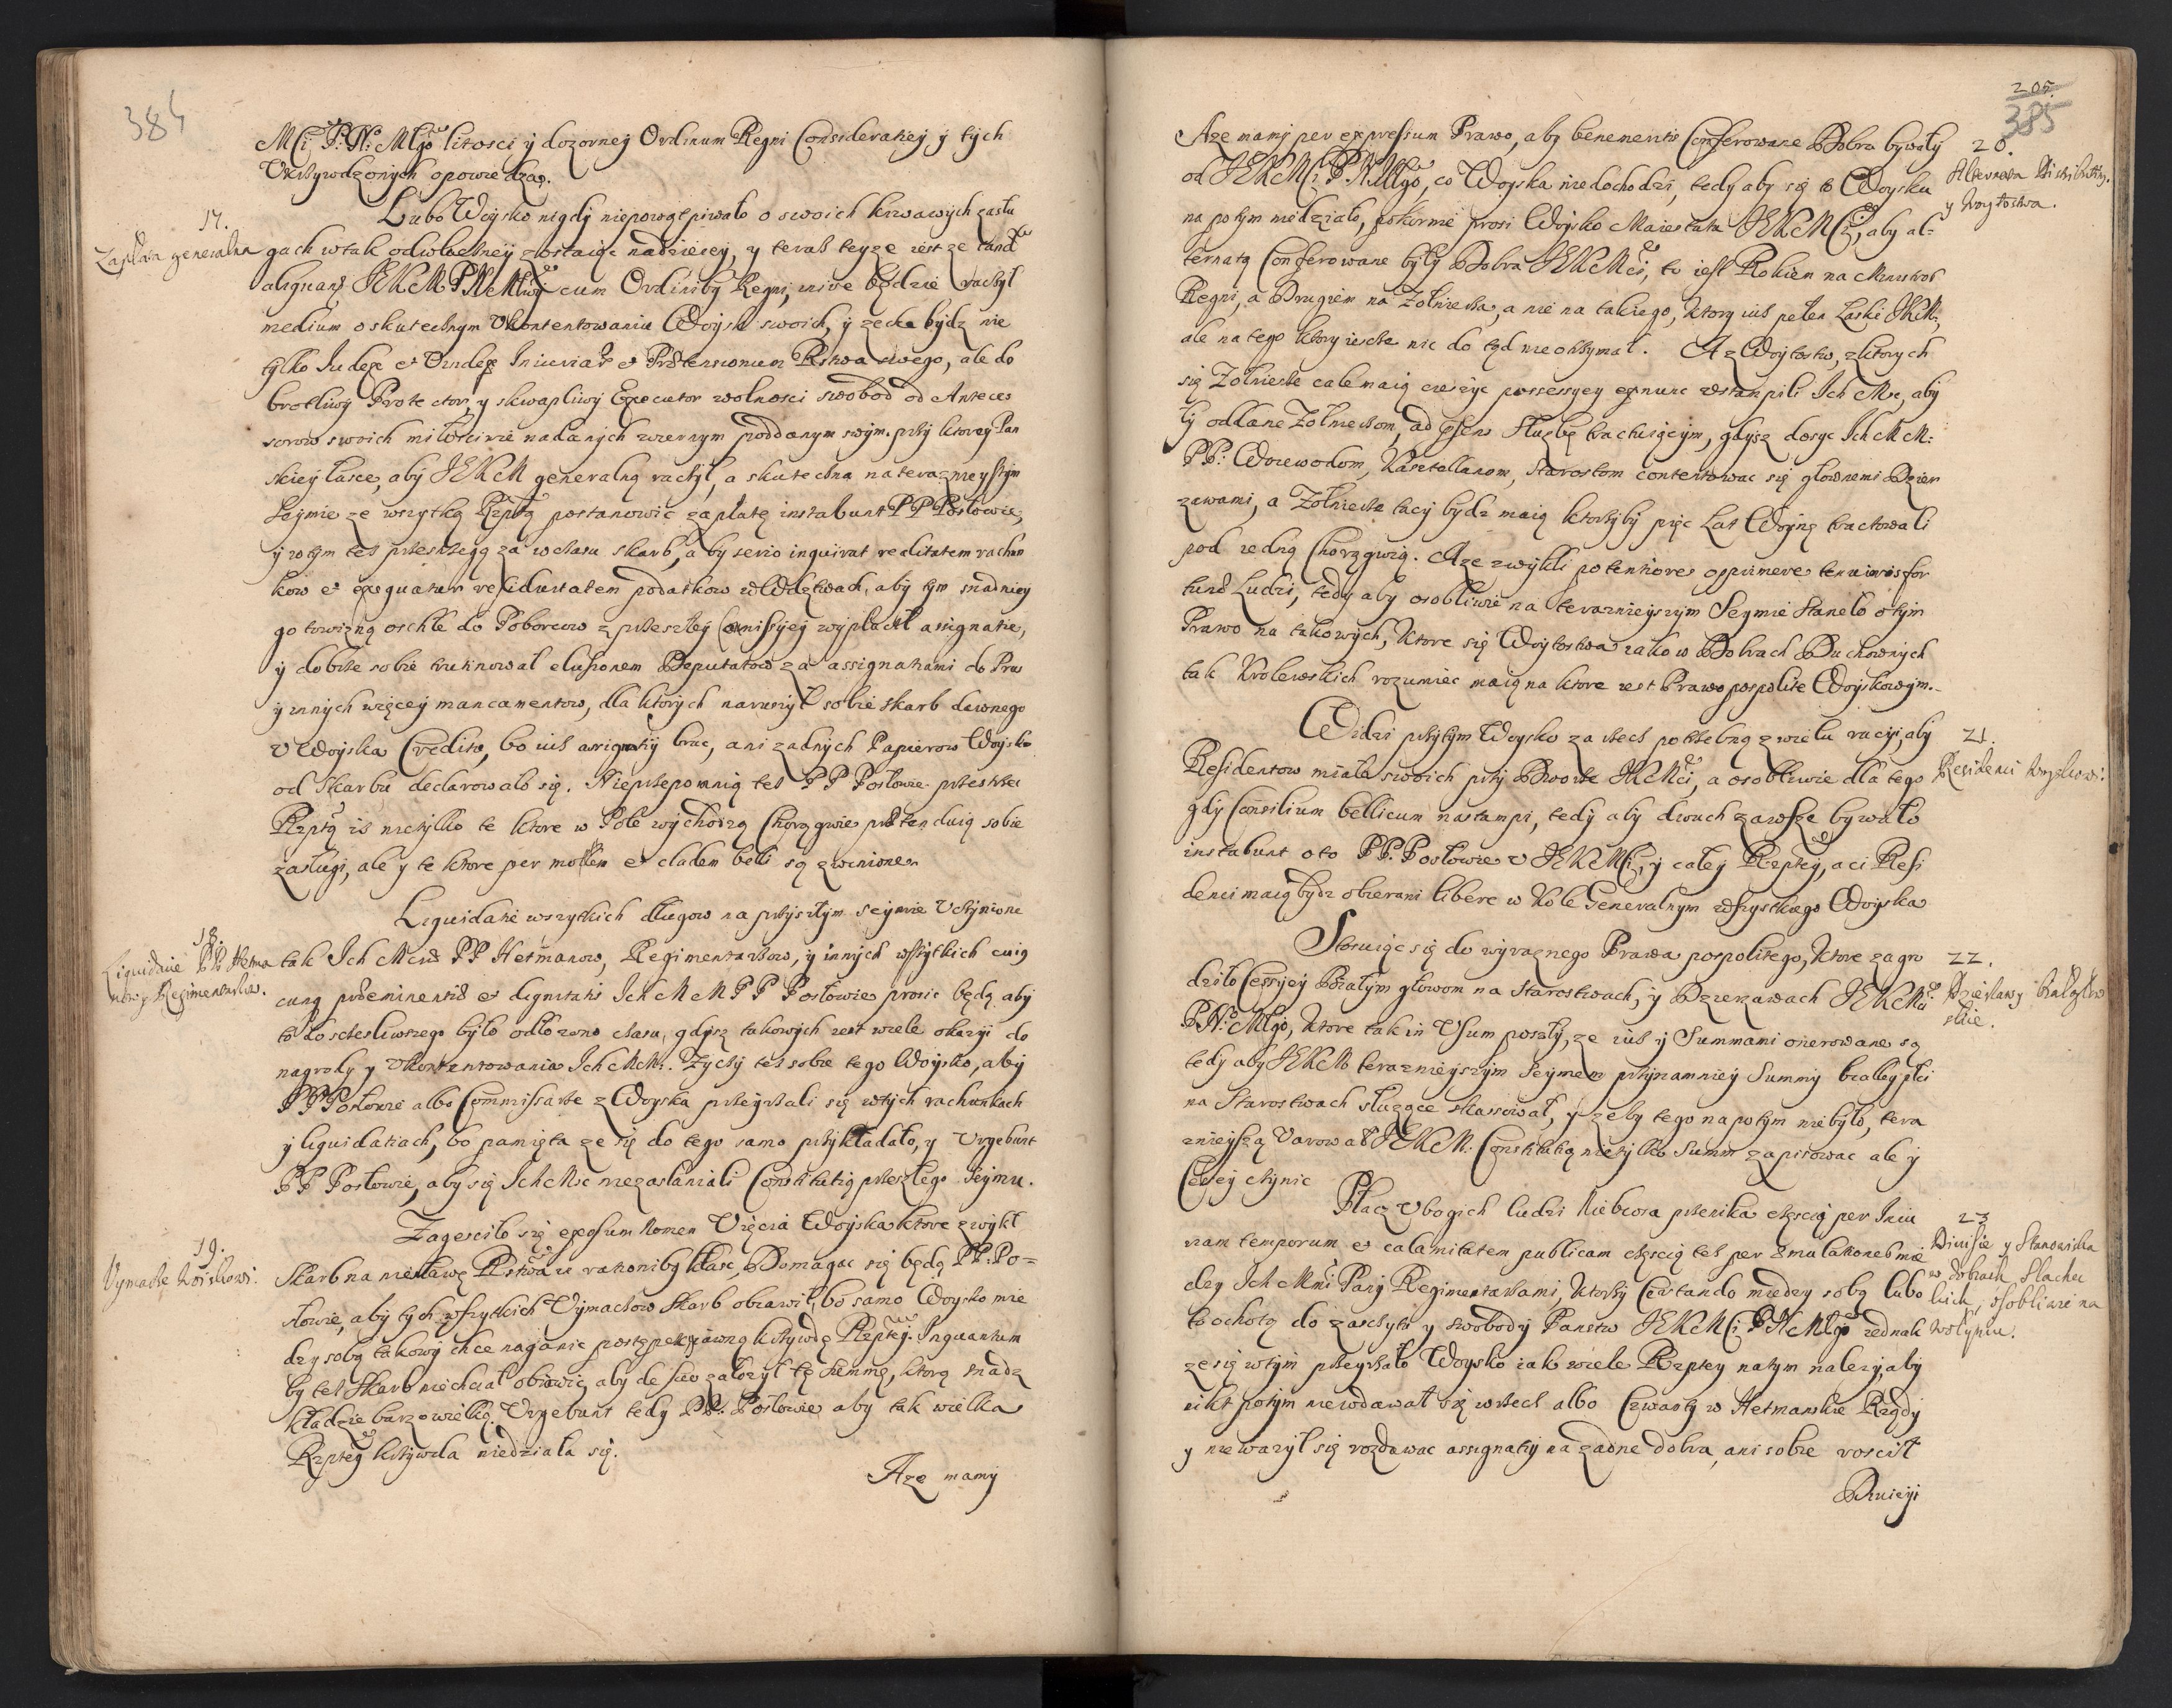 384
MCi P: N: Mlgo litosci y dozorney Ordinum Regni Consideratiey y tych
Ukrzywdzonych opowiedzą.
17.
Zapłata generalna
Lubo Woysko nigdy niepowątpiwało o swoich krwawych zasłu
gach w tak odwłoczney zostaiąc nadzieiey, y teraz teyze iest ze tand
aliquand JEKcM PNMlwy cum Ordinibq Regni inire będzie raczył
medium o skutecznym Ukontentowaniu Woysk swoich, y zechce bydz nie
tylko Judex et Vindex Iniuriar et Prætensionum Rstwa swego, ale do
brotliwy Protector, y skwapliwy Executor wolnosci swobod od Anteces
sorow swoich miłosciwie nadanych wiernym poddanym swym. przy ktorey Pan
skiey łasce, aby JEKcM generalną raczył, a skuteczna na teraznieyszym
Seymie ze wszytką Rzptą postanowic zapłatę instabunt PP Posłowie,
y w tym tez przestrzegą za wczasu skarb, aby serio inquirat realitatem rachun
kow et exequatur residuitatem podatkow w Wdztwach, aby tym snadniey
gotowizną oschłe do Poborcow z przeszłey Comissyey wypłacił assignatie,
y dobrze sobie trutinował elusionem Deputatow za assignatiami do Prus
y innych więcey mancamentow, dla ktorych naruszył sobie skarb dawnego
u Woyska Credito, bo iuz assignatiy brac, ani zadnych Papierow Woysko
od Skarbu declarowało się. Nieprzepomnią tez PP Posłowie przestrzec
Rzptą iz nietylko te ktore w Pole wychodzą Chorągwie prætenduią sobie
zasługi, ale y te ktore per molem et cladem belli są zwinione
18.
Liquidatie PP Hetma
now y Regimentarzow.
Liquidatie wszytkich długow na przyszłym seymie Uczynione
tak Ich Mciow PP Hetmanow, Regimentarzow, y innych wszytkich cuius
cunq præeminentiæ et dignitatis Ich McM PP Posłowie prosic będą aby
to do sczesliwszego było odłozono czasu, gdysz takowych iest wiele okazyi do
nagrody y Ukontentowania Ich McM. Zyczy tez sobie tego Woysko, aby
PP Posłowie albo Commissarze z Woyska przeyrzali się w tych rachunkach
y liquidatiach, bo pamięta ze się do tego samo przykładało, y Urgebunt
PP Posłowie, aby się Ich Mc niezasłaniali Constitutią przeszłego Seymu.
19.
Vymarłe woiskowi.
Zagęsciło się exosum Nomen Vięcia Woyska ktore zwykł
Skarb na niesławę Rstwa w rationibq kłasc, Domagac się będą PP. Po=
słowie, aby tych wszytkich Uymaczow Skarb obiawił, bo samo Woysko mie
dzy sobą takowy chce naganic postępek, y iawną krzywdę Rzptey. Inquantum
by tez Skarb niechciał obiawic, aby de suo załozył tę summę, ktorą snadz
kładzie barzo wielką. Urgebunt tedy PP. Posłowie aby tak wielka
Rzptey krzywda niedziała się.
Aze mamy
205.
385
20.
Alternata Distributty.
y Woytostwa.
Aze mamy per expressum Prawo, aby benemeritis Conferowane Dobra bywały
od JEKcMCi P.N.Mlgo, co Woyska niedochodzi, tedy aby się to Woysku
na potym niedziało, pokornie prosi Woysko Maiestatu JEKcMCi, aby al=
ternatą Conferowane były Dobra JEKcMci, to iest Rokiem na Ministros
Regni, a Drugiem na Zołnierza, a nie na takiego, ktory iuz pełen Łaski JKcM:
ale na tego ktory ieszcze nic do tyd nieotrzymał. A z Woytostw, z ktorych
się Zołnierze cale maią cieszyc possessyey ex nunc wstampili Ich Mc, aby
ty oddane Zołnierzom, ad psens słuzbę tractuiącym, gdysz dosyc Ich McM:
PP: Woiewodom, Kasztellanom, Starostom contentowac się głownemi Dzier
zawami, a Zołnierze tacy bydz maią ktorzyby pięc Lat Woynę tractowali
pod iedną Chorągwią. Aze zwykli potentiores opprimere tenuioris for
tunæ Ludzi, tedy aby osobliwie na teraznieyszym Seymie Staneło o tym
Prawo na takowych, ktore się Woytostwa iako w Dobrach Duchownych
tak Krolewskich rozumiec maią na ktore iest Prawo pospolite Woyskowym.
21.
Residenci Woyskowi.
Widzi przytym Woysko za rzecz potrzebną z wielu racyi, aby
Residentow miała swoich przy Dworze JKcMci, a osobliwie dla tego
gdy Consilium bellicum nastampi, tedy aby dwuch zawsze bywało
instabunt o to PP. Posłowie u JEKcMCi, y całey Rzptey, a ci Resi
denci maią bydz obierani libere w Kole Generalnym wszystkiego Woyska
22.
Dzierzawy Białogłow
skie.
Stosuiąc się do wyraznego Prawa pospolitego, ktore zagro
dziło Cessyey Białym głowom na Starostwach, y Dzierzawach JEKcMci
PN:Mlgo, ktore tak in Usum poszły, ze iuz y Summami onerowane są
tedy aby JEKcM teraznieyszym Seymem przynamniey Summy białley płci
na Starostwach słuzące skassował, y zeby tego napotym niebyło, tera
znieyszą Varował JEKcM. Constitutią nietylko Summ zapisowac ale y
Cessey czynic
23
Divisie y Stanowiska
w dobrach Slachec
kich, osobliwie na
Wołyniu.
Płacz Ubogich ludzi Niebiosa przenika częscią per Iniu
riam temporum et calamitatem publicam częscią tez per æmulationes mie
dzy Ich Mmi Pany Regimentarzami, ktorzy Certando miedzy sobą lubo
to ochotą do zasczytu y swobody Panstw JEKcMCi PNMlgo iednak
ze się w tym przeyrzało Woysko iak wiele Rzptey natym nalezy, aby
nikt potym niewdawał się w rzecz albo Czwarty w Hetmanskie Rządy
y niewazył się rozdawac assignatiy na zadne dobra, ani sobie roscił
Dwieyi